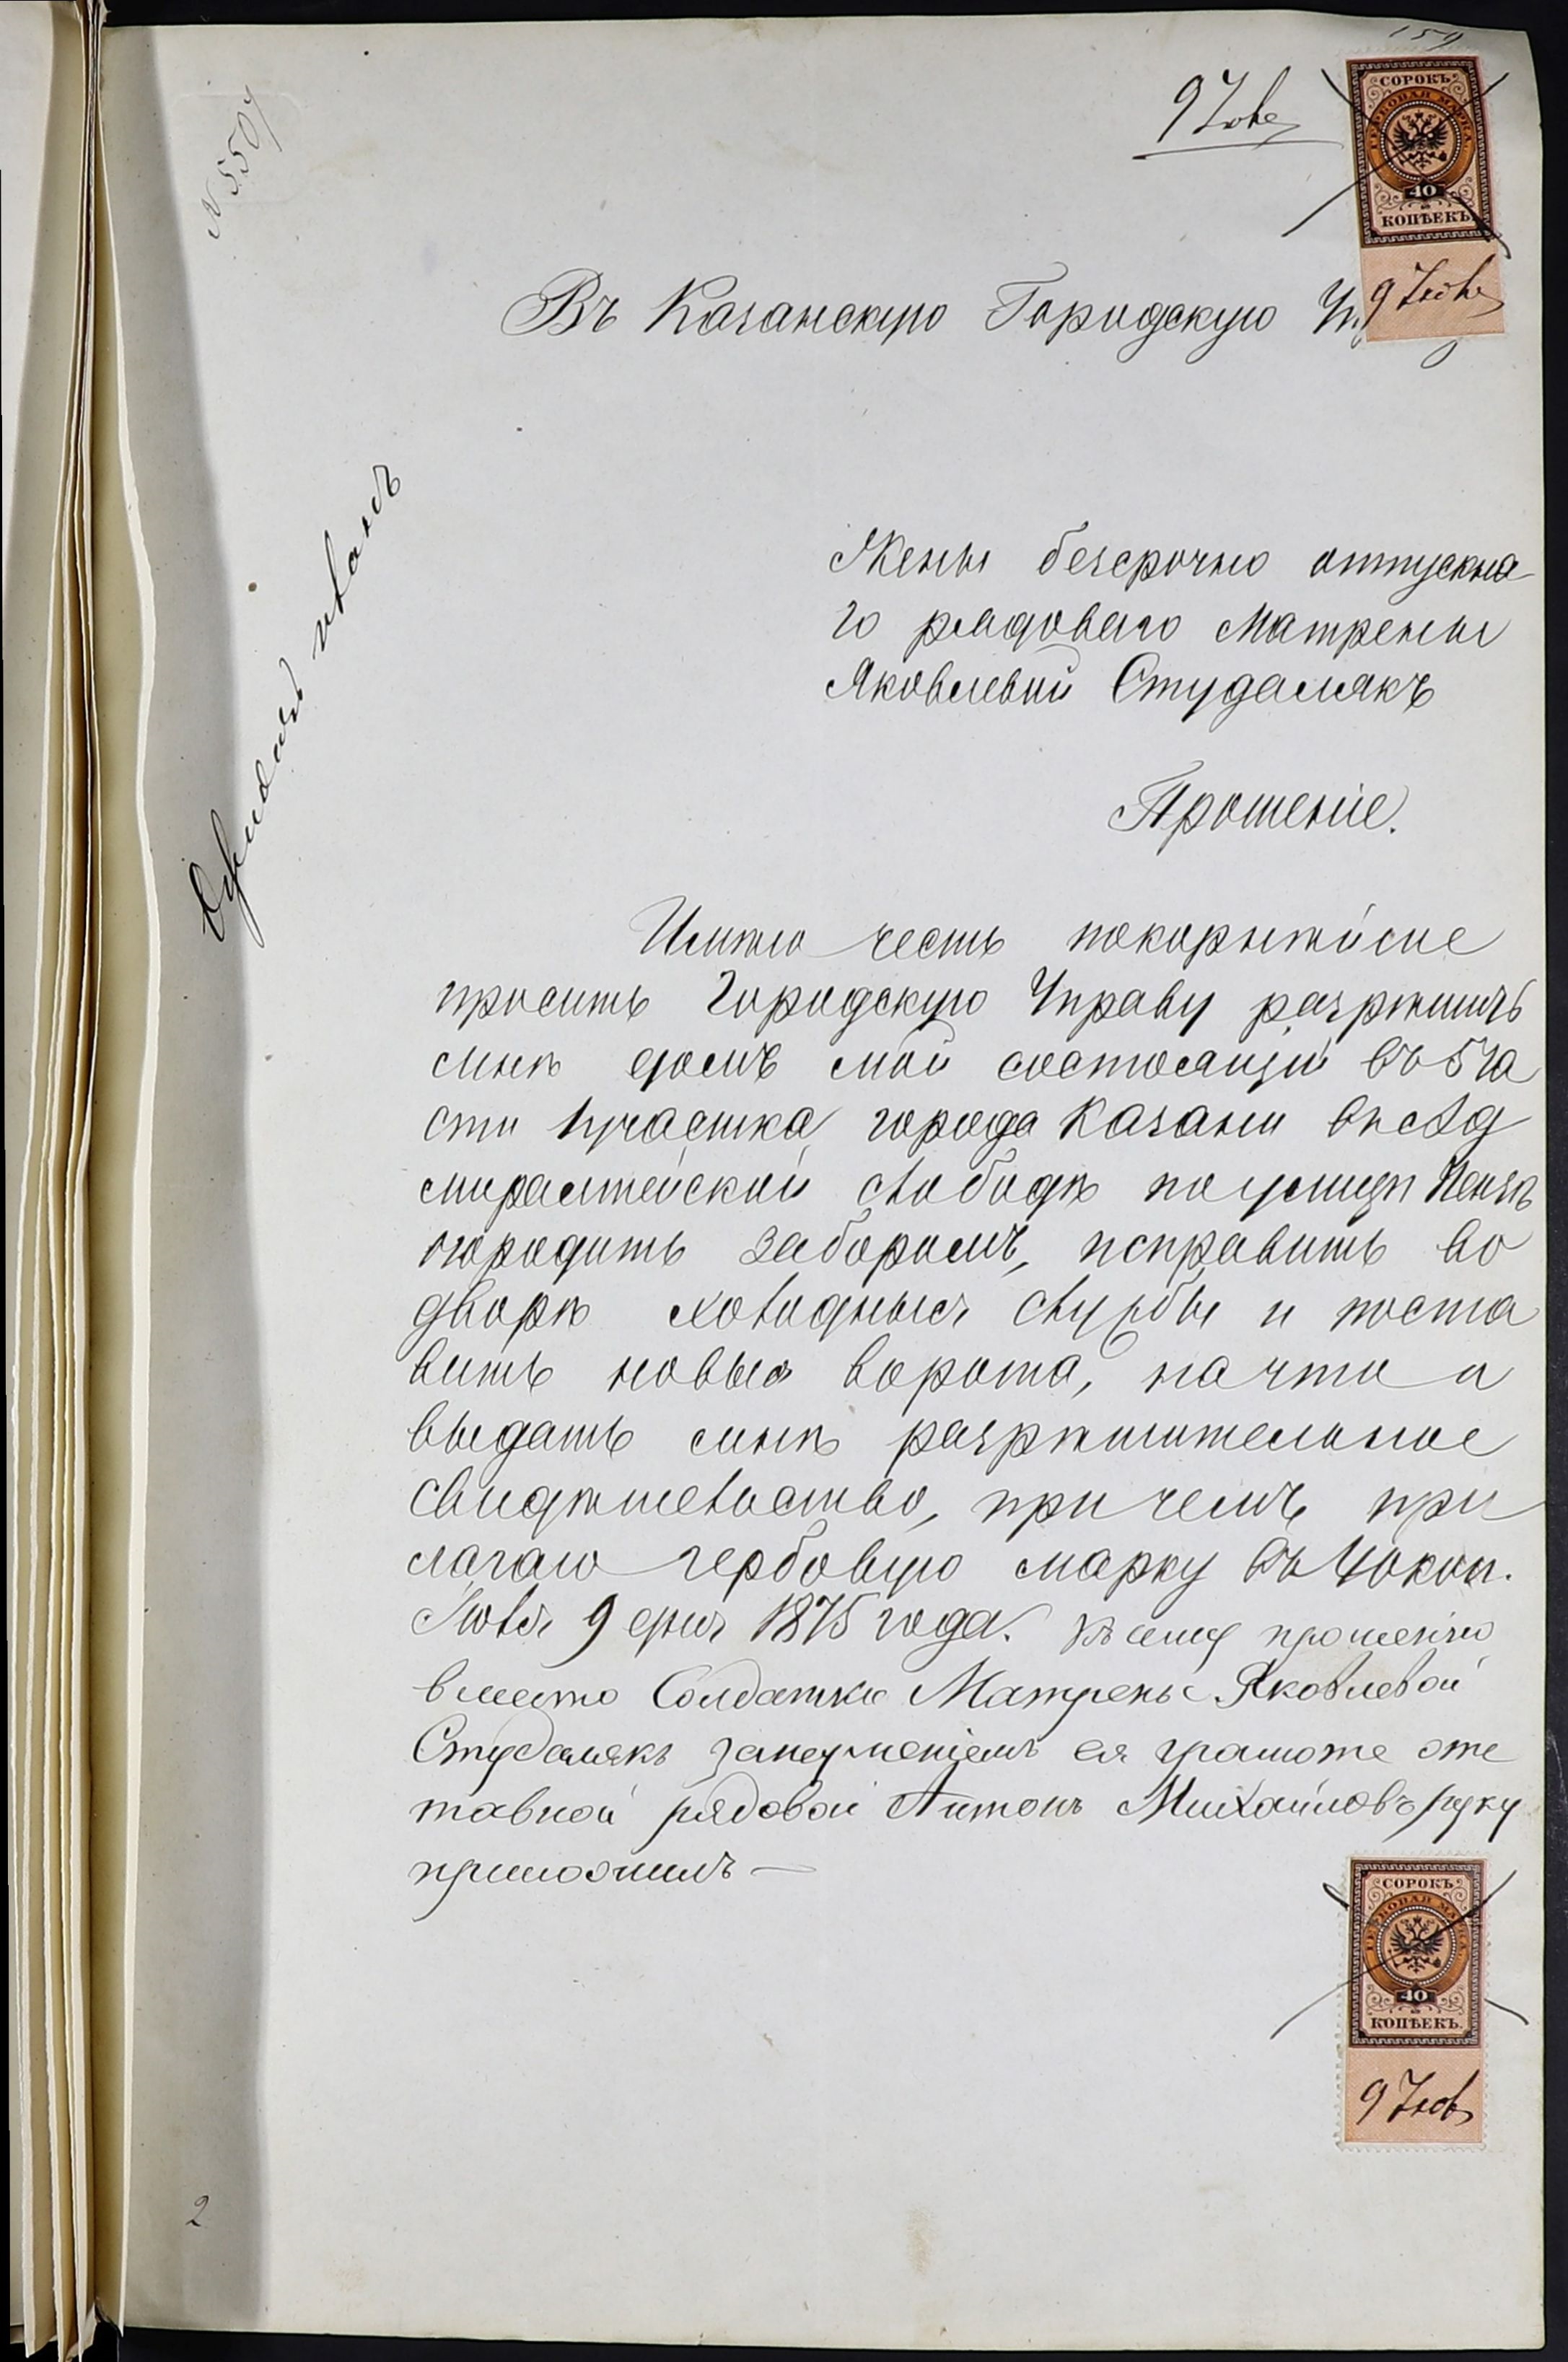 159
9 Июля
СОРОКЪ
ГЕРБОВАЯ МАРКА
40
КОПѢЕКЪ
9 Июля
N 5507
Въ Казанскую Городскую
Жены безсрочно отпускна
го рядоваго Матрены
Яковлевой Студалякъ
Прошеніе.
Имѣю честь покорнѣйше
просить Городскую Управу разрѣшить
мнѣ домъ мой состоящій въ 5 ча
сти 1 участка города Казани въ Ад
миралтейской слободѣ по улицѣ
огородить заборомъ, исправить во
дворѣ холодныя службы и поста
вить новыя ворота, на что и
выдать мнѣ разрѣшительное
свидѣтельство, при чемъ при
лагаю гербовую марку въ 40 коп.
Іюля 9 дня 1875 года. Къ сему прошенію
вместо Солдатки Матрены Яковлевой
Студалякъ занеумѣніемъ ея грамоте отс
тавной рядовой Антонъ Михайловъ руку
приложилъ —
СОРОКЪ
ГЕРБОВАЯ МАРКА
40
КОПѢЕКЪ.
9 Июля
2